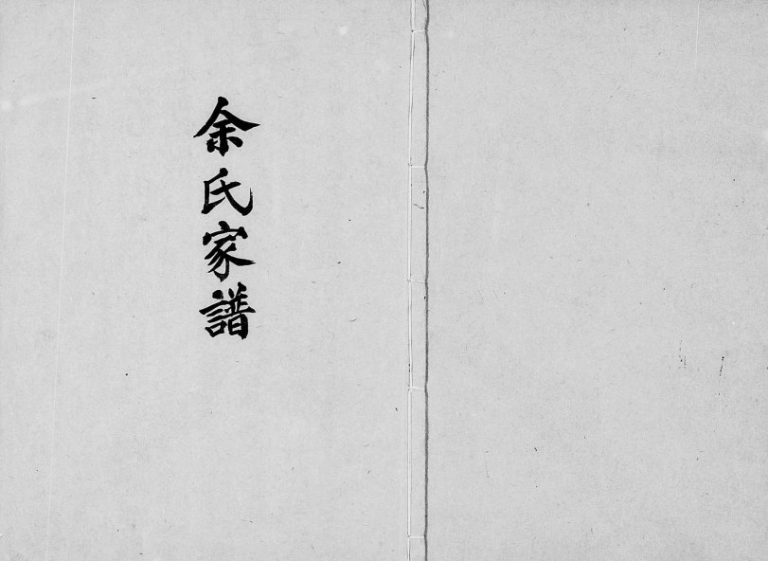 余氏家譜